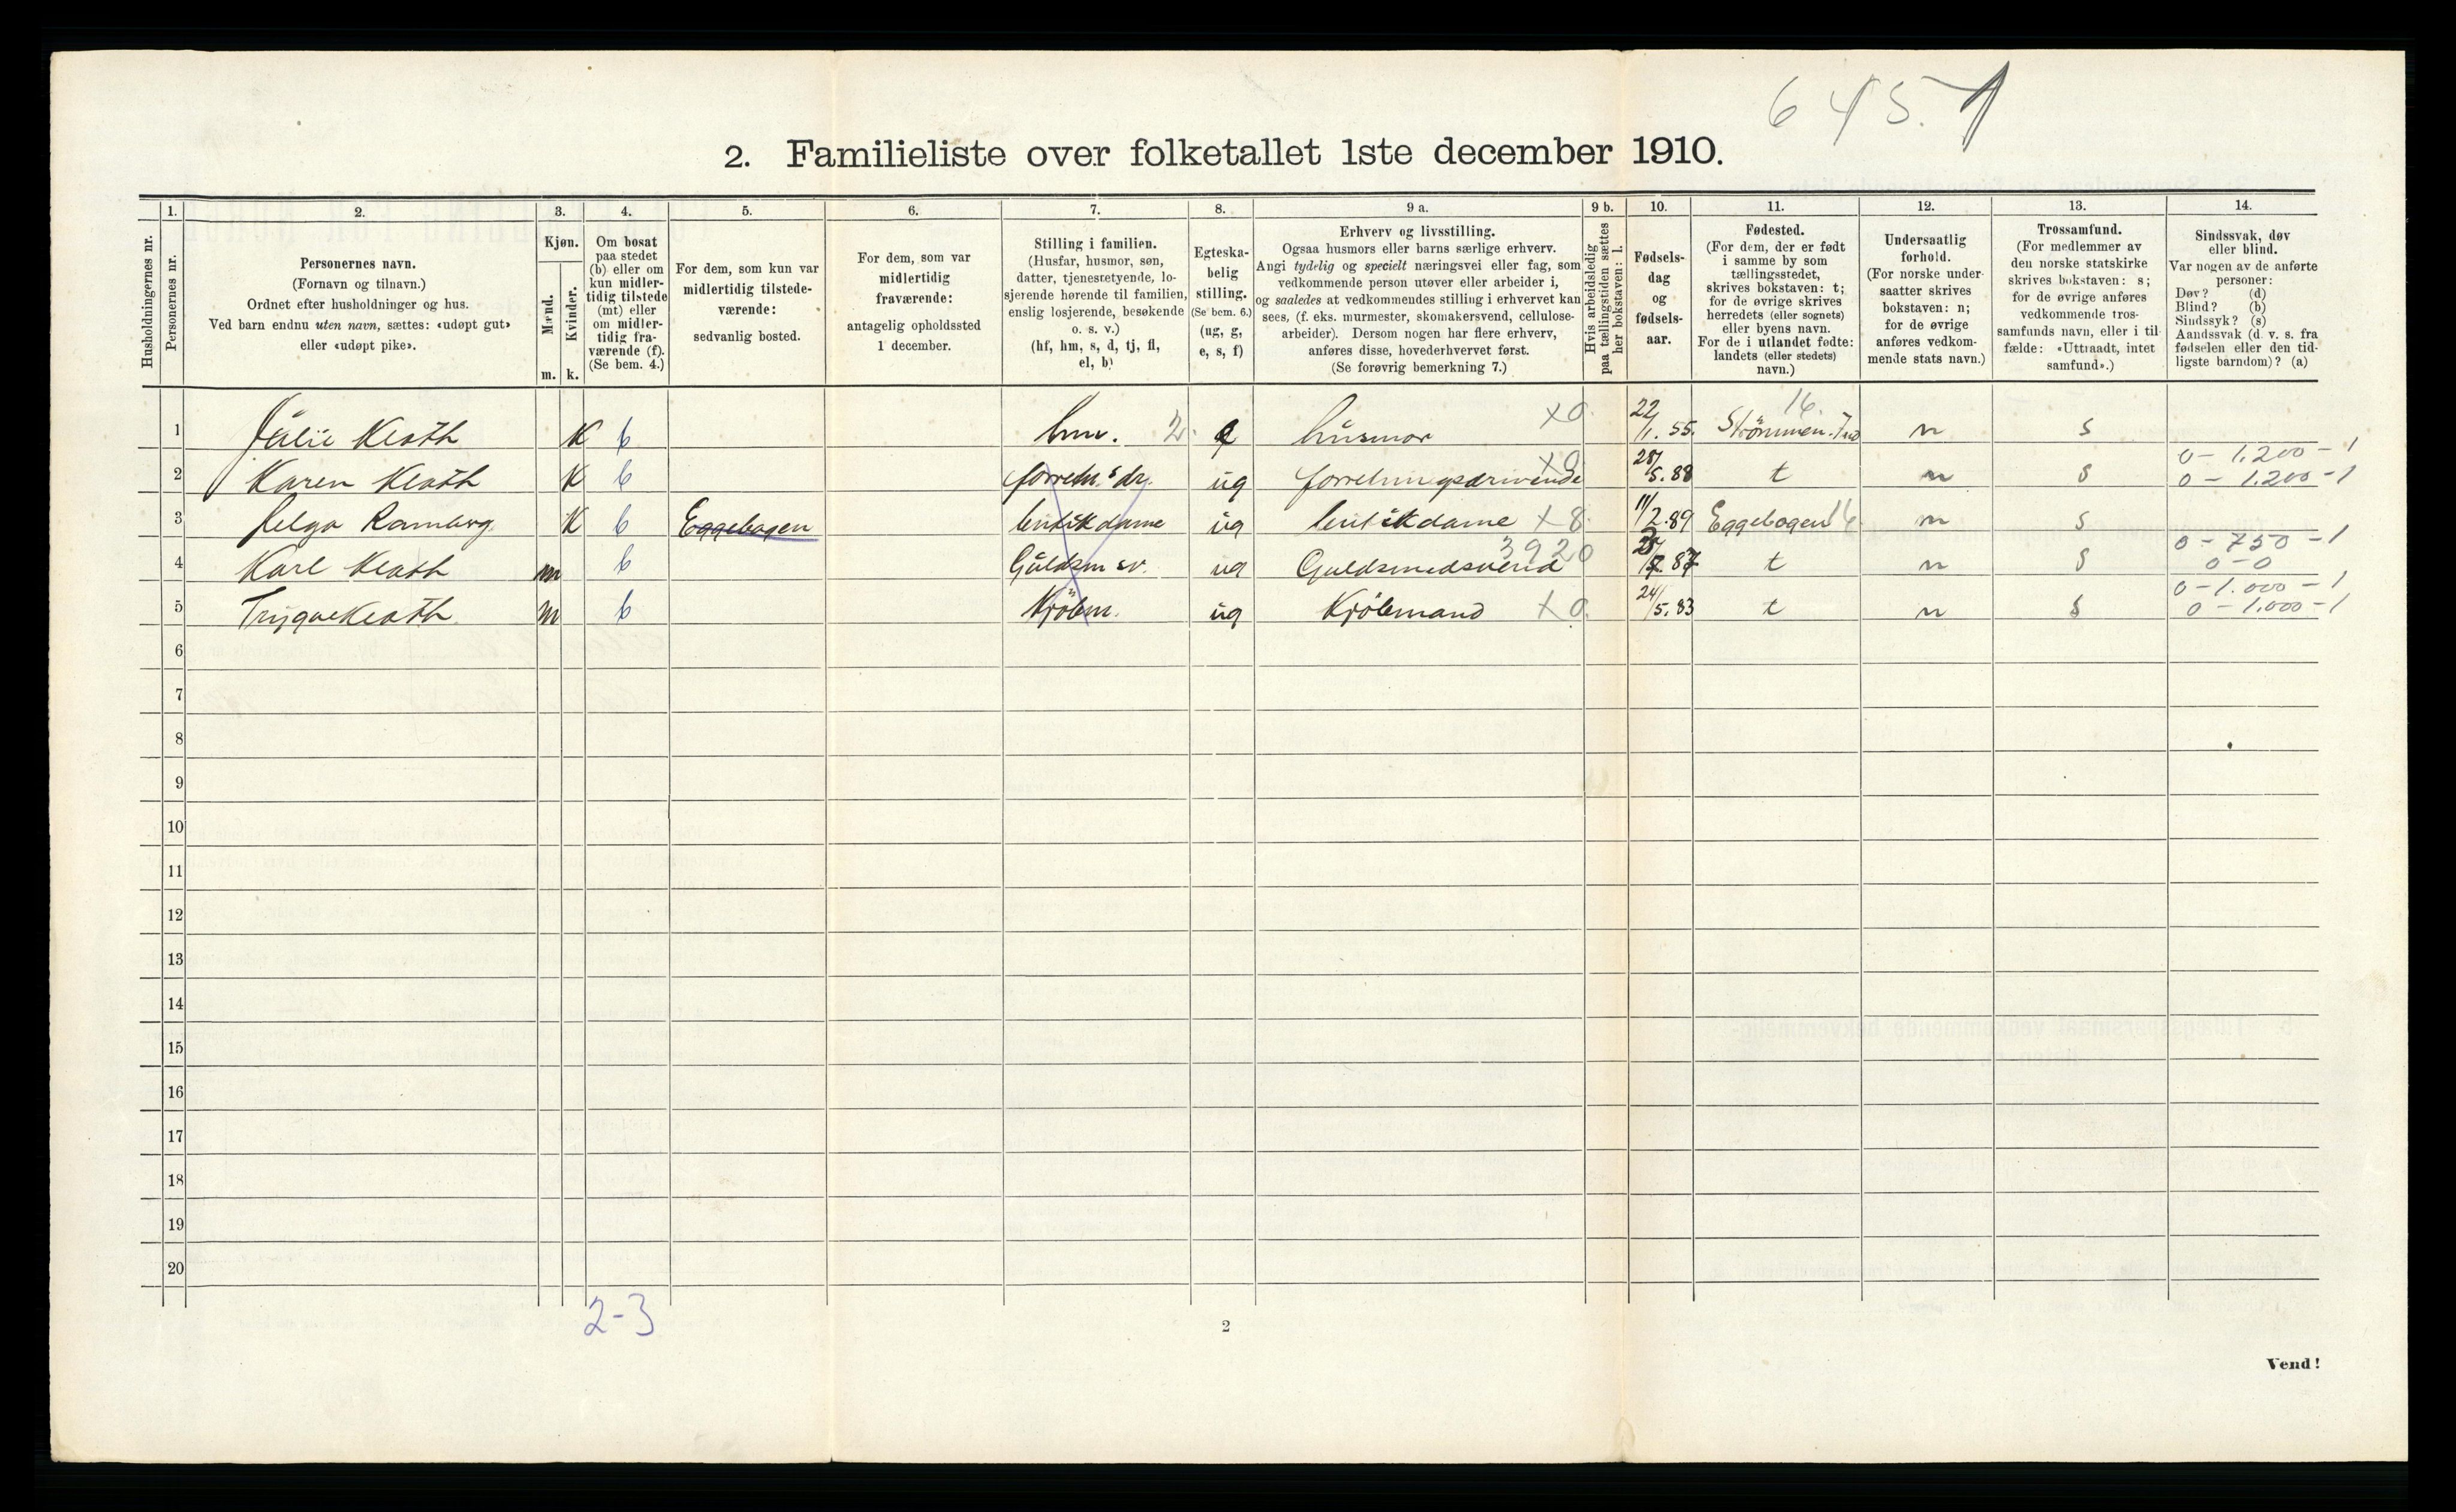 6 4 5. 1
2. Familieliste over folketallet 1ste december 1910.
1. 2. 3. 4. 5. 6. 7. 8. 9 a. 9 b. 10. 11. 12. 13. 14.
Husholdningernes nr.
Personernes nr.
Personernes navn.
(Fornavn og tilnavn.)
Ordnet efter husholdninger og hus.
Ved barn endnu uten navn, sættes: «udøpt gut»
eller «udøpt pike».
Kjøn.
Mænd.
Kvinder.
m. k.
Om bosat
paa stedet
(b) eller om
kun midler-
tidig tilstede
(mt) eller
om midler-
tidig fra-
værende (f).
(Se bem. 4.)
For dem, som kun var
midlertidig tilstede-
værende:
sedvanlig bosted.
For dem, som var
midlertidig
fraværende:
antagelig opholdssted
1 december.
Stilling i familien.
(Husfar, husmor, søn,
datter, tjenestetyende, lo-
sjerende hørende til familien,
enslig losjerende, besøkende
o. s. v.)
(hf, hm, s, d, tj, fl,
el, b)
Egteska-
belig
stilling.
(Se bem. 6.)
(ug, g,
e, s, f)
Erhverv og livsstilling.
Ogsaa husmors eller barns særlige erhverv.
Angi tydelig og specielt næringsvei eller fag, som
vedkommende person utøver eller arbeider i,
og saaledes at vedkommendes stilling i erhvervet kan
sees, (f. eks. murmester, skomakersvend, cellulose-
arbeider). Dersom nogen har flere erhverv,
anføres disse, hovederhvervet først.
(Se forøvrig bemerkning 7.)
Hvis arbeidsledig
paa tællingstiden sættes
her bokstaven: l.
Fødsels-
dag
og
fødsels-
aar.
Fødested.
(For dem, der er født
i samme by som
tællingsstedet,
skrives bokstaven: t;
for de øvrige skrives
herredets (eller sognets)
eller byens navn.
For de i utlandet fødte:
landets (eller stedets)
navn.)
Undersaatlig
forhold.
(For norske under-
saatter skrives
bokstaven: n;
for de øvrige
anføres vedkom-
mende stats navn.)
Trossamfund.
(For medlemmer av
den norske statskirke
skrives bokstaven: s;
for de øvrige anføres
vedkommende tros-
samfunds navn, eller i til-
fælde: «Uttraadt, intet
samfund».)
Sindssvak, døv
eller blind.
Var nogen av de anførte
personer:
Døv? (d)
Blind? (b)
Sindssyk? (s)
Aandssvak (d. v. s. fra
fødselen eller den tid-
ligste barndom)? (a)
1 Julie K b hm. 2. husmor x 0. 22/1. 55. Strømmen 16. n s
0 - 1.200 - 1
2 Karen K b forretn.sdr. ug forretningsdrivende x 0 28/5.88 t n s 0 - 1.200 - 1
3 Helga Ramberg K b Eggebogen butikdame ug butikdame x 8. 11/2.89 Eggebogen 16. n s
0 - 750 - 1
4 Karl m b Guldsm sv. ug Guldsmedsvend 3920 t n s 0 - 0
0 - 1.000 - 1
5 Trygve m b Kjøbm. ug Kjøbmand x 0. 24/5.83 t n s 0 - 1.000 - 1
6
7
8
9
10
11
12
13
14
15
16
17
18
19
20
2-3
2
Vend!